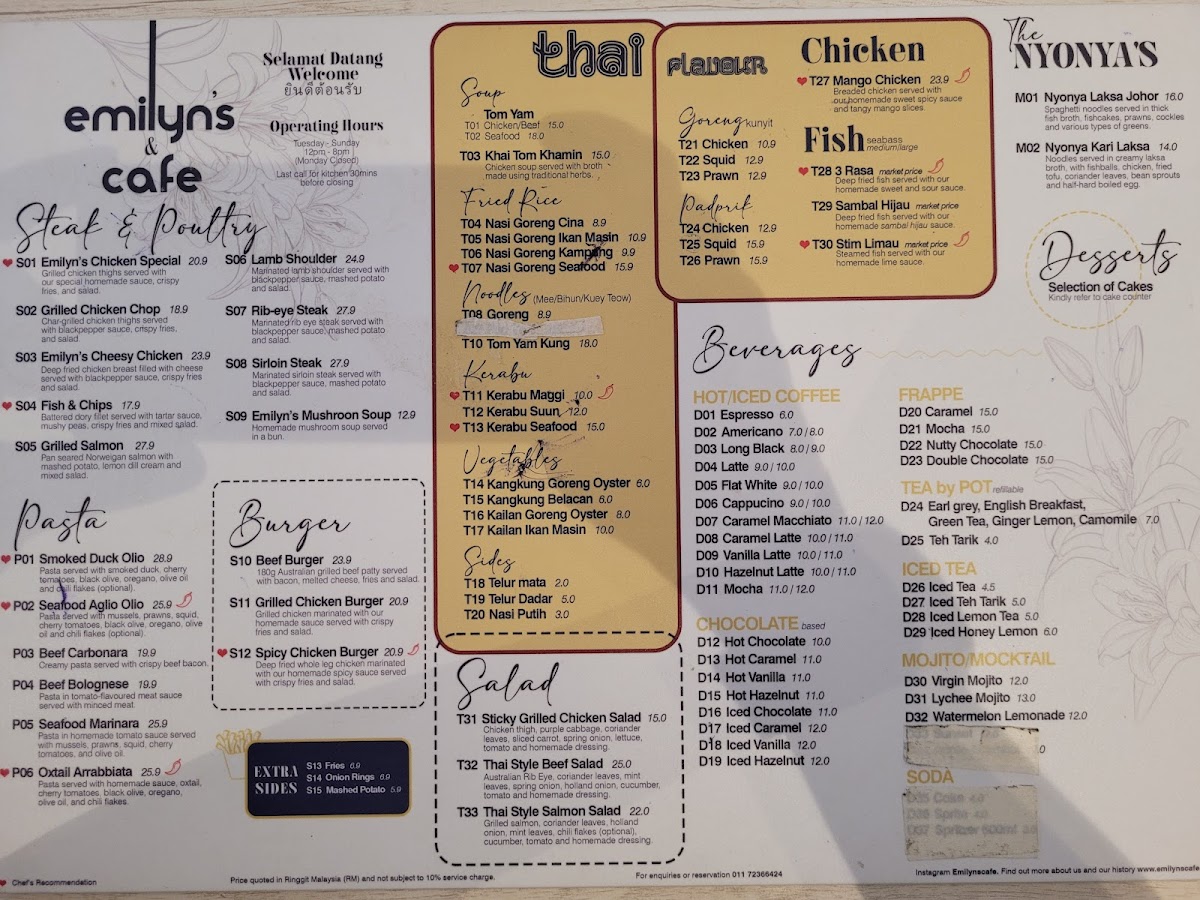 emilyn's
&
cafe
Selamat Datang
Welcome
ยินดีต้อนรับ
Operating Hours
Tuesday - Sunday
12pm - 8pm
(Monday Closed)
Last call for kitchen 30mins
before closing
Steak & Poultry
S01 Emilyn's Chicken Special 20.9
Grilled chicken thighs served with
our special homemade sauce, crispy
fries, and salad.
S02 Grilled Chicken Chop 18.9
Char-grilled chicken thighs served
with blackpepper sauce, crispy fries,
and salad.
S03 Emilyn's Cheesy Chicken 23.9
Deep fried chicken breast filled with cheese
served with blackpepper sauce, crispy fries
and salad.
S04 Fish & Chips 17.9
Battered dory fillet served with tartar sauce,
mushy peas, crispy fries and mixed salad.
S05 Grilled Salmon 27.9
Pan seared Norweigan salmon with
mashed potato, lemon dill cream and
mixed salad.
S06 Lamb Shoulder 24.9
Marinated lamb shoulder served with
blackpepper sauce, mashed potato
and salad.
S07 Rib-eye Steak 27.9
Marinated rib eye steak served with
blackpepper sauce, mashed potato
and salad.
S08 Sirloin Steak 27.9
Marinated sirloin steak served with
blackpepper sauce, mashed potato
and salad.
S09 Emilyn's Mushroon Soup 12.9
Homemade mushroom soup served
in a bun.
Pasta
P01 Smoked Duck Olio 28.9
Pasta served with smoked duck, cherry
tomatoes, black olive, oregano, olive oil
and chili flakes (optional).
P02 Seafood Aglio Olio 25.9
Pasta served with mussels, prawns, squid,
cherry tomatoes, black olive, oregano, olive
oil and chili flakes (optional).
P03 Beef Carbonara 19.9
Creamy pasta served with crispy beef bacon.
P04 Beef Bolognese 19.9
Pasta in tomato-flavoured meat sauce
served with minced meat.
P05 Seafood Marinara 25.9
Pasta in homemade tomato sauce served
with mussels, prawns, squid, cherry
tomatoes, and olive oil.
P06 Oxtail Arrabbiata 25.9
Pasta served with homemade sauce, oxtail,
cherry tomatoes, black olive, oregano,
olive oil, and chili flakes.
Burger
S10 Beef Burger 23.9
180g Australian grilled beef patty served
with bacon, melted cheese, fries and salad.
S11 Grilled Chicken Burger 20.9
Grilled chicken marinated with our
homemade spicy sauce served with crispy
fries and salad.
S12 Spicy Chicken Burger 20.9
Deep fried whole leg chicken marinated
with our homemade spicy sauce served
with crispy fries and salad.
EXTRA
SIDES
S13 Fries 6.9
S14 Onion Rings 6.9
S15 Mashed Potato 5.9
thai flavour
Soup
Tom Yam
T01 Chicken/Beef 15.0
T02 Seafood 18.0
T03 Khai Tom Khamin 15.0
Chicken soup served with broth
made using traditional herbs.
Fried Rice
T04 Nasi Goreng Cina 8.9
T05 Nasi Goreng Ikan Masin 10.9
T06 Nasi Goreng Kampung 9.9
T07 Nasi Goreng Seafood 15.9
Noodles (Mee/Bihun/Kuey Teow)
T08 Goreng 8.9
T10 Tom Yam Kung 18.0
Kerabu
T11 Kerabu Maggi 10.0
T12 Kerabu Suun 12.0
T13 Kerabu Seafood 15.0
Vegetables
T14 Kangkung Goreng Oyster 6.0
T15 Kangkung Belacan 6.0
T16 Kailan Goreng Oyster 8.0
T17 Kailan Ikan Masin 10.0
Sides
T18 Telur mata 2.0
T19 Telur Dadar 5.0
T20 Nasi Putih 3.0
Goreng kunyit
T21 Chicken 10.9
T22 Squid 12.9
T23 Prawn 12.9
Padprik
T24 Chicken 12.9
T25 Squid 15.9
T26 Prawn 15.9
Chicken
T27 Mango Chicken 23.9
Breaded chicken served with
our homemade sweet spicy sauce
and tangy mango slices.
Fish seabass
medium/large
T28 3 Rasa market price
Deep fried fish served with our
homemade sweet and sour sauce.
T29 Sambal Hijau market price
Deep fried fish served with our
homemade sambal hijau sauce.
T30 Stim Limau market price
Steamed fish served with our
homemade lime sauce.
Salad
T31 Sticky Grilled Chicken Salad 15.0
Chicken thigh, purple cabbage, coriander
leaves, sliced carrot, spring onion, lettuce,
tomato and homemade dressing.
T32 Thai Style Beef Salad 25.0
Australian Rib Eye, coriander leaves, mint
leaves, spring onion, holland onion, cucumber,
tomato and homemade dressing.
T33 Thai Style Salmon Salad 22.0
Grilled salmon, coriander leaves, holland
onion, mint leaves, chili flakes (optional),
cucumber, tomato and homemade dressing.
The
NYONYA'S
M01 Nyonya Laksa Johor 16.0
Spaghetti noodles served in thick
fish broth, fishcakes, prawns, cockles
and various types of greens.
M02 Nyonya Kari Laksa 14.0
Noodles served in creamy laksa
broth, with fishballs, chicken, fried
tofu, coriander leaves, bean sprouts
and half-hard boiled egg.
Desserts
Selection of Cakes
Kindly refer to cake counter
Beverages
HOT/ICED COFFEE
D01 Espresso 6.0
D02 Americano 7.0 / 8.0
D03 Long Black 8.0 / 9.0
D04 Latte 9.0 / 10.0
D05 Flat White 9.0 / 10.0
D06 Cappucino 9.0 / 10.0
D07 Caramel Macchiato 11.0 / 12.0
D08 Caramel Latte 10.0 / 11.0
D09 Vanilla Latte 10.0 / 11.0
D10 Hazelnut Latte 10.0 / 11.0
D11 Mocha 11.0 / 12.0
CHOCOLATE based
D12 Hot Chocolate 10.0
D13 Hot Caramel 11.0
D14 Hot Vanilla 11.0
D15 Hot Hazelnut 11.0
D16 Iced Chocolate 11.0
D17 Iced Caramel 12.0
D18 Iced Vanilla 12.0
D19 Iced Hazelnut 12.0
FRAPPE
D20 Caramel 15.0
D21 Mocha 15.0
D22 Nutty Chocolate 15.0
D23 Double Chocolate 15.0
TEA by POT refillable
D24 Earl grey, English Breakfast,
Green Tea, Ginger Lemon, Camomile 7.0
D25 Teh Tarik 4.0
ICED TEA
D26 Iced Tea 4.5
D27 Iced Teh Tarik 5.0
D28 Iced Lemon Tea 5.0
D29 Iced Honey Lemon 6.0
MOJITO/MOCKTAIL
D30 Virgin Mojito 12.0
D31 Lychee Mojito 13.0
D32 Watermelon Lemonade 12.0
D33 Sunset
SODA
D35 Coke 4.0
D36 Sprite 4.0
D37 Spritzer 600ml
Chef's Recommendation
Price quoted in Ringgit Malaysia (RM) and not subject to 10% service charge.
For enquiries or reservation 011 72366424
Instagram Emilynscafe. Find out more about us and our history www.emilynscafe